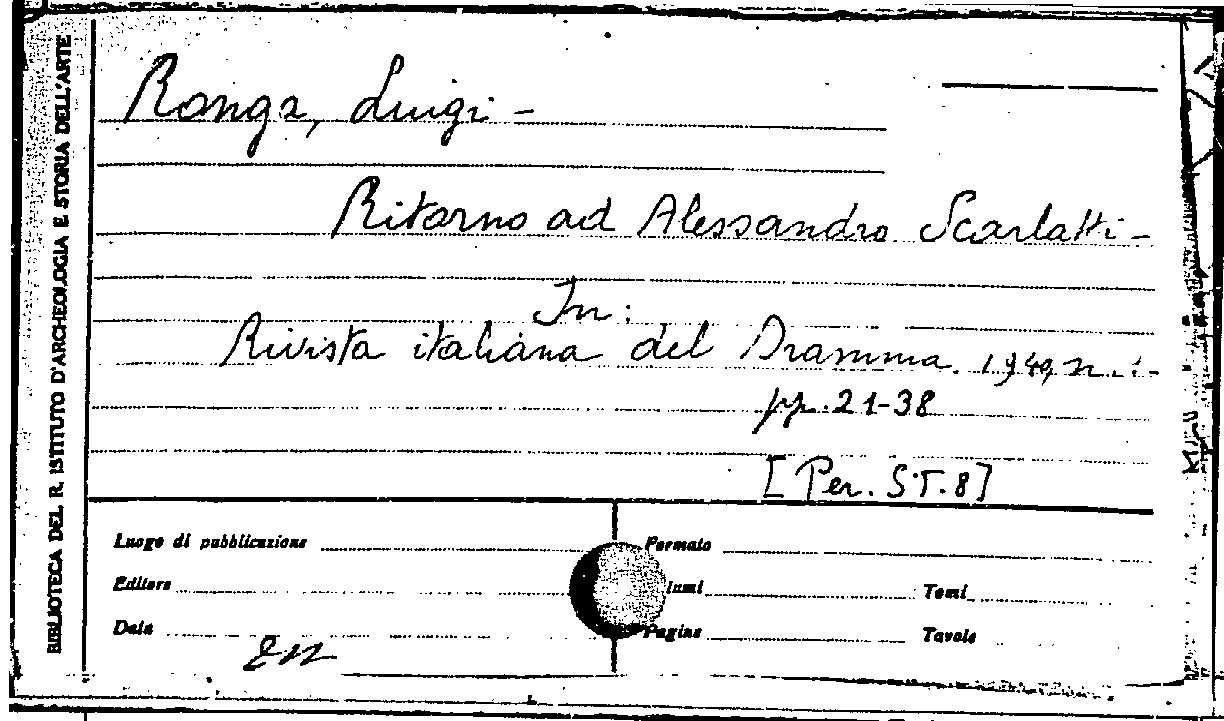 BIBLIOTECA DEL R. ISTITUTO D'ARCHEOLOGIA E STORIA DELL'ARTE
Ronga, Luigi -
Ritorno ad Alessandro Scarlatti -
In:
Rivista italiana del Dramma. 1940, n.
pp. 21-38
[Per. ST. 8]
Luogo di pubblicazione
Formato
Editore
lumi
Tomi
Data
Pagine
Tavole